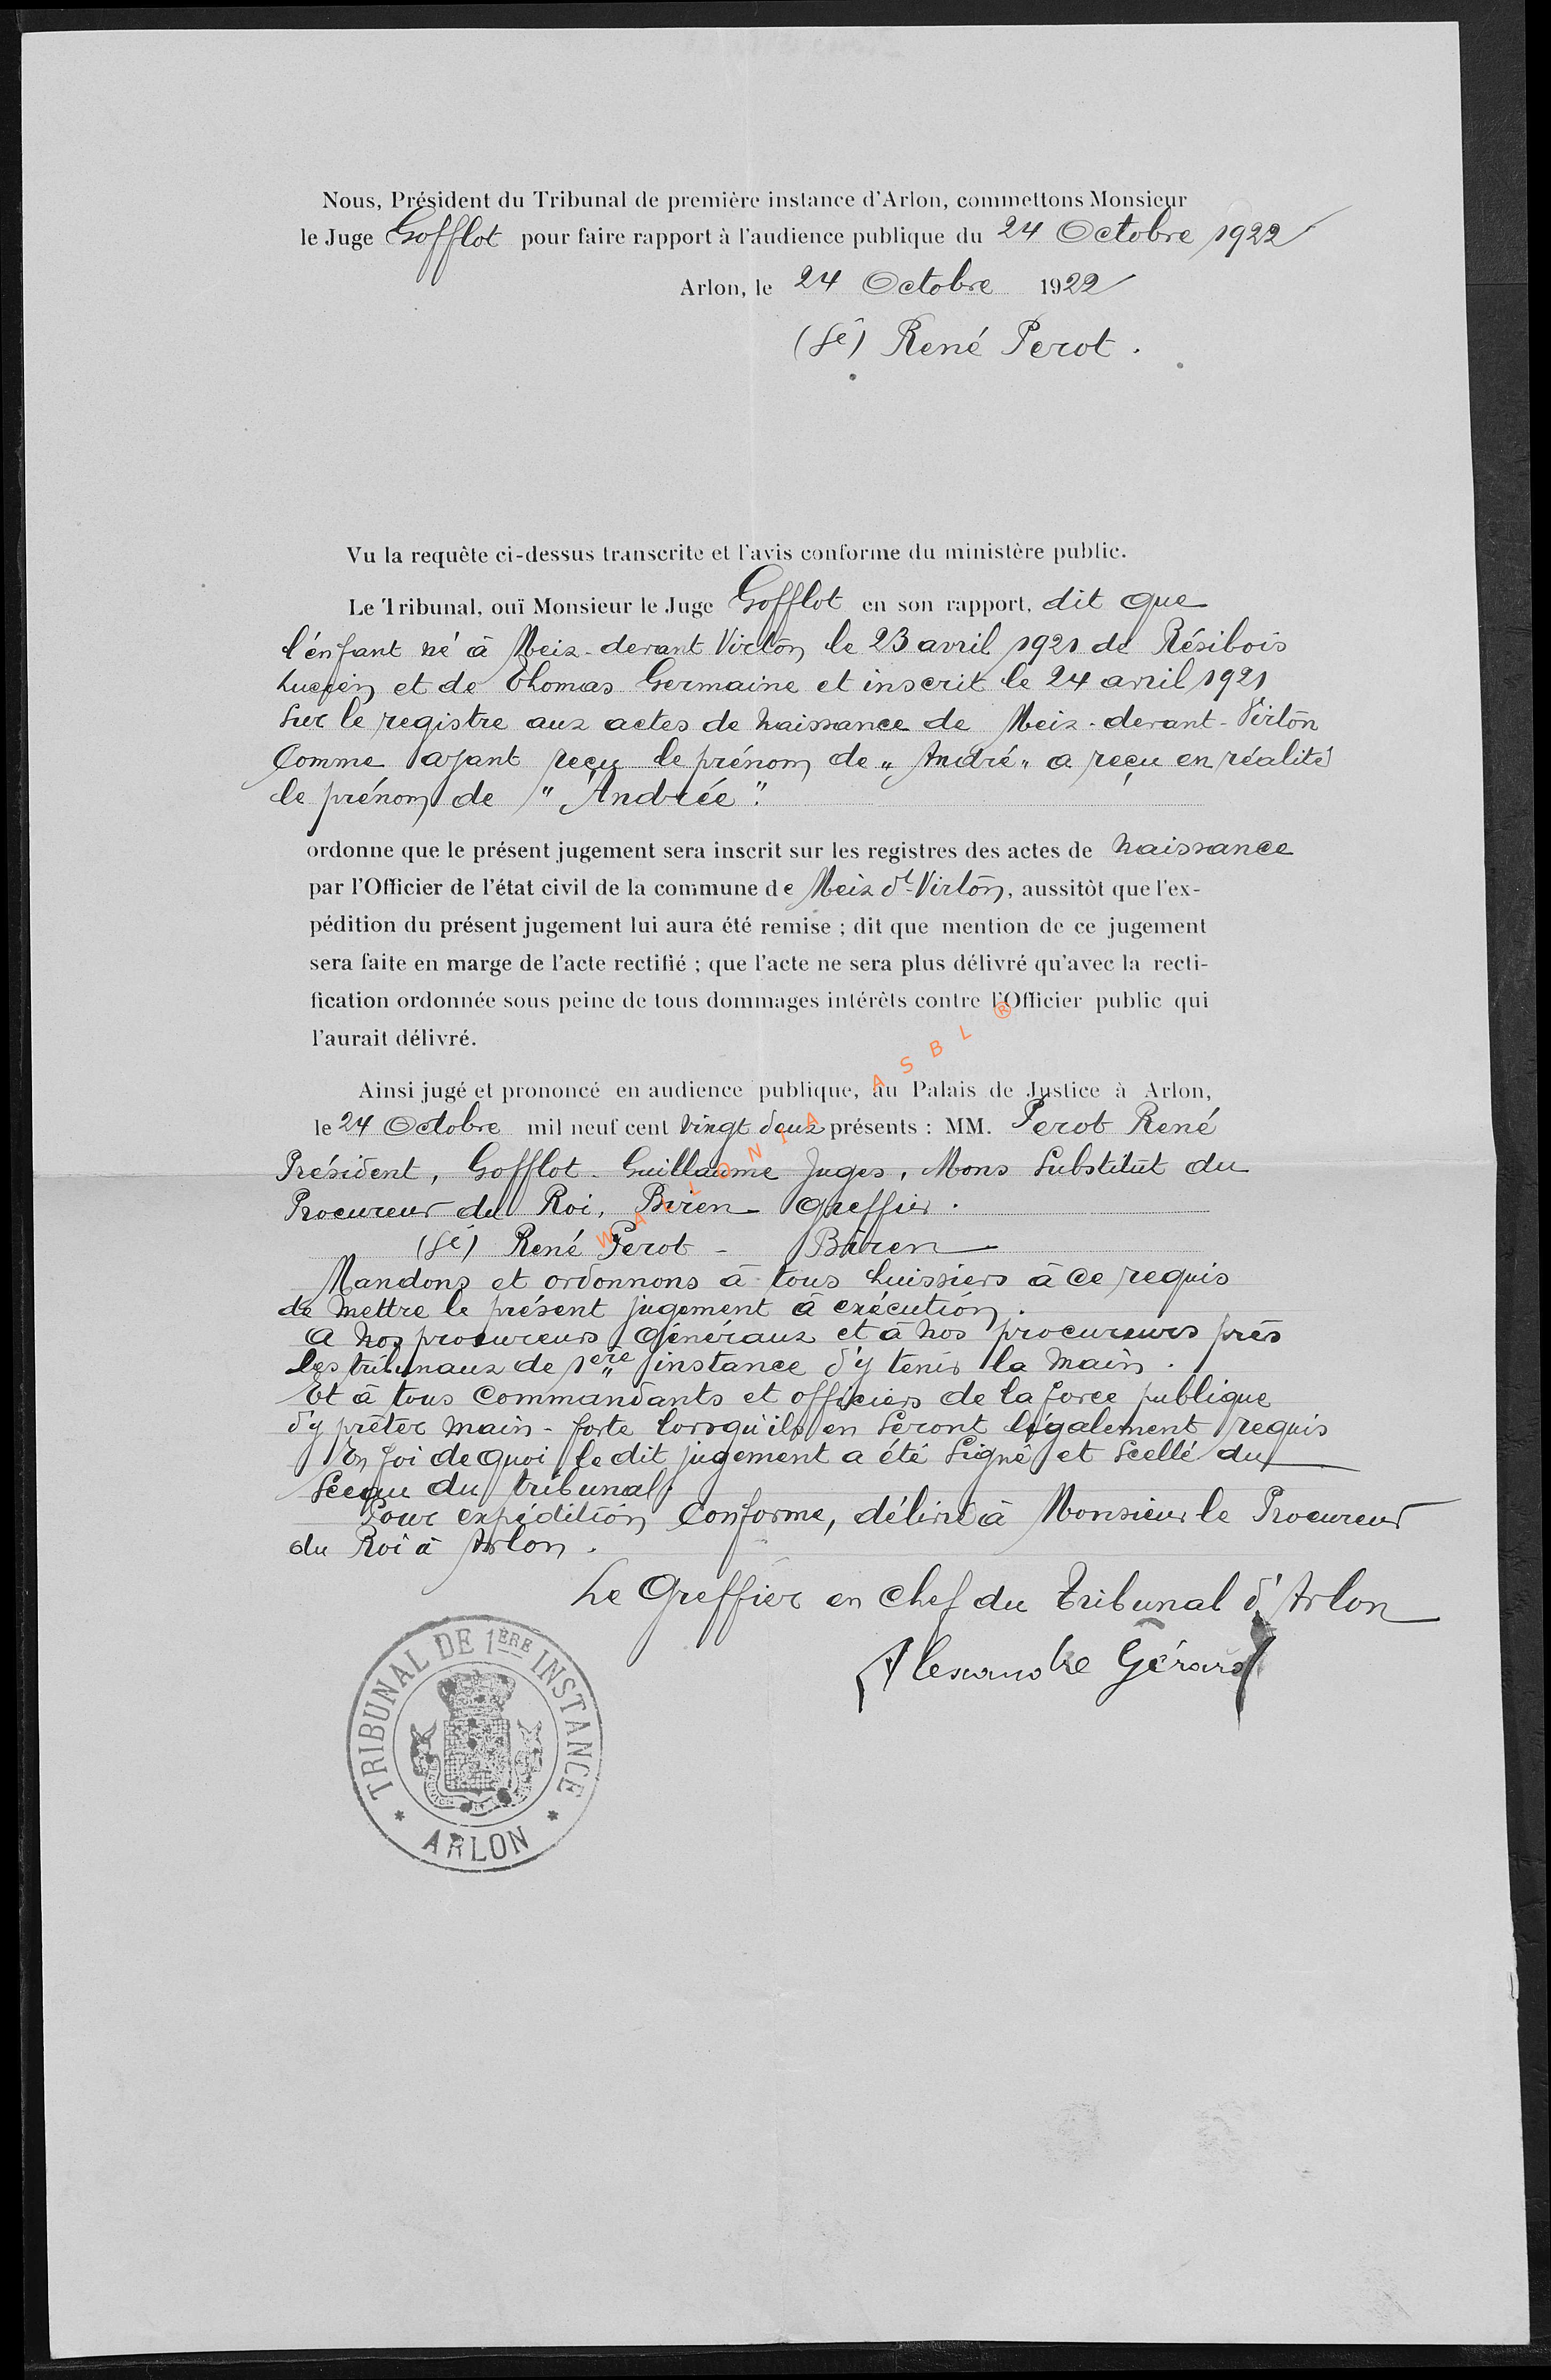 Nous, Président du Tribunal de première instance d'Arlon, commettons Monsieur
le Juge Gofflot pour faire rapport à l'audience publique du 24 Octobre 1922
Arlon, le 24 Octobre 1922
(Sé) René Perot.
Vu la requête ci-dessus transcrite et l'avis conforme du ministère public.
Le Tribunal, ouï Monsieur le Juge Gofflot en son rapport, dit que
l'enfant né à Meix-devant Virton le 23 avril 1921 de Résibois
Lucien et de Thomas Germaine et inscrit le 24 avril 1921
sur le registre aux actes de naissance de Meix-devant-Virton
comme ayant reçu le prénom de "André" a reçu en réalité
le prénom de "Andrée".
ordonne que le présent jugement sera inscrit sur les registres des actes de naissance
par l'Officier de l'état civil de la commune de Meix dt-Virton, aussitôt que l'ex-
pédition du présent jugement lui aura été remise ; dit que mention de ce jugement
sera faite en marge de l'acte rectifié ; que l'acte ne sera plus délivré qu'avec la recti-
fication ordonnée sous peine de tous dommages intérêts contre l'Officier public qui
l'aurait délivré.
Ainsi jugé et prononcé en audience publique, au Palais de Justice à Arlon,
le 24 Octobre mil neuf cent vingt deux présents : MM. Perot René
Président, Gofflot. Guillaume Juges, Mons Substitut du
Procureur du Roi, Biren Greffier.
(Sé) René Perot - Biren
Mandons et ordonnons à tous huissiers à ce requis
de mettre le présent jugement à exécution.
A nos procureurs généraux et à nos procureurs près
les tribunaux de 1ère instance d'y tenir la main.
Et à tous commandants et officiers de la force publique
d'y prêter main-forte lorsqu'ils en seront légalement requis
En foi de quoi le dit jugement a été signé et scellé du
sceau du tribunal.
Pour expédition conforme, délivré à Monsieur le Procureur
du Roi à Arlon.
Le Greffier en chef du Tribunal d'Arlon
Alexandre Gérard
TRIBUNAL DE 1ÈRE INSTANCE
* ARLON *
WALLONIA ASBL ®